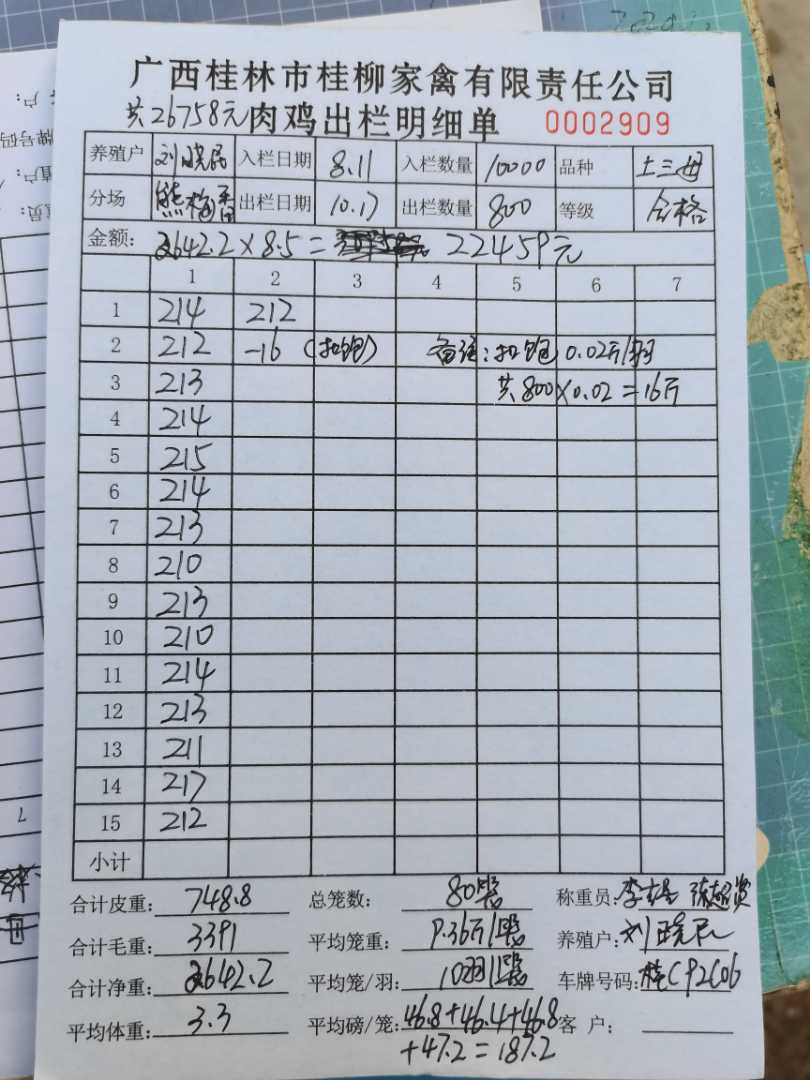 广西桂林市桂柳家禽有限责任公司
共26758元 肉鸡出栏明细单 0002909
养殖户 刘晓民 入栏日期 8.11 入栏数量 10000 品种 土三母
分场 熊梅香 出栏日期 10.17 出栏数量 800 等级 合格
金额: 2642.2×8.5= 22459元
1 2 3 4 5 6 7
1 214 212
2 212 -16 (扣饱) 备注:扣饱 0.02斤/羽
3 213 共800×0.02=16斤
4 214
5 215
6 214
7 213
8 210
9 213
10 210
11 214
12 213
13 211
14 217
15 212
小计
合计皮重: 748.8 总笼数: 80笼 称重员:
合计毛重: 3391 平均笼重: 9.36斤/笼 养殖户: 刘晓民
合计净重: 2642.2 平均笼/羽: 10羽/笼 车牌号码: 桂CP2C06
平均体重: 3.3 平均磅/笼: 46.8+46.4+46.8 客户:
+47.2=187.2